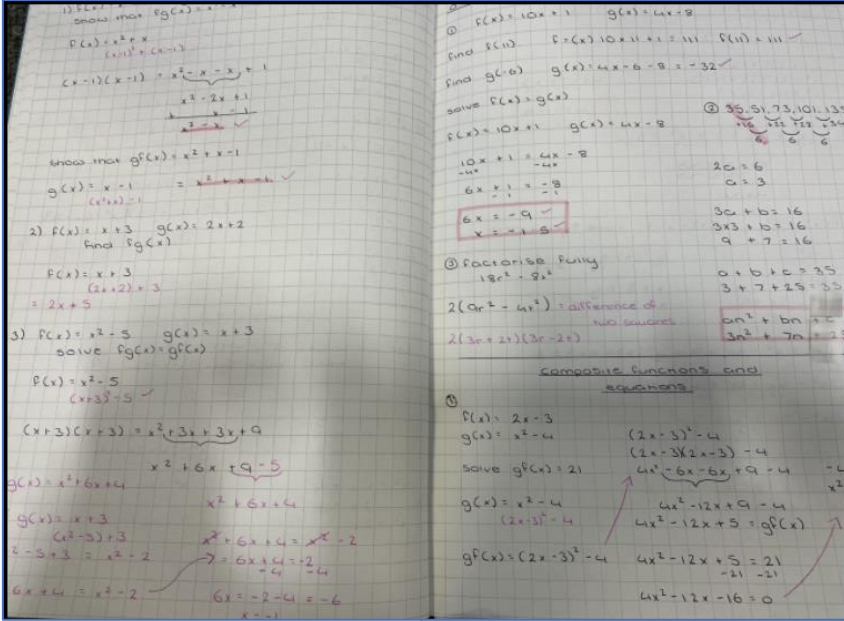 show that fg(x) =
f(x) = x² + x
(x-1)² + (x-1)
(x-1)(x-1) = x² - x - x + 1
x² - 2x + 1
x - 1
x² - x ✓
show that gf(x) = x² + x - 1
g(x) = x - 1 = x² + x - 1 ✓
(x²+x) - 1
2) f(x) = x + 3 g(x) = 2x + 2
find fg(x)
f(x) = x + 3
(2x+2) + 3
= 2x + 5
3) f(x) = x² - 5 g(x) = x + 3
solve fg(x) = gf(x)
f(x) = x² - 5
(x+3)² - 5 ✓
(x+3)(x+3) = x² + 3x + 3x + 9
x² + 6x + 9 - 5
g(x) = x² + 6x + 4
x² + 6x + 4
g(x) = x + 3
(x²-5) + 3
x² + 6x + 4 = x² - 2
² - 5 + 3 = x² - 2
= 6x + 4 = -2
-4 -4
6x + 4 = x² - 2
6x = -2 - 4 = -6
x = -1
① f(x) = 10x + 1 g(x) = 4x - 8
find f(11) f=(x) 10 x 11 + 1 = 111 f(11) = 111 ✓
find g(-6) g(x) = 4x - 6 - 8 = -32 ✓
solve f(x) = g(x)
f(x) = 10x + 1 g(x) = 4x - 8
10x + 1 = 4x - 8
-4x -4x
6x + 1 = -8
-1 -1
6x = -9 ✓
x = -1.5 ✓
② 35, 51, 73, 101, 135
+16 +22 +28 +34
6 6 6
2a = 6
a = 3
3a + b = 16
3x3 + b = 16
9 + 7 = 16
a + b + c = 35
3 + 7 + 25 = 35
an² + bn + c
3n² + 7n + 2
③ factorise fully
18r² - 8t²
2(9r² - 4t²) = difference of
two squares
2(3r + 2t)(3r - 2t)
composite functions and
equations
①
f(x) = 2x - 3
g(x) = x² - 4
solve gf(x) = 21
g(x) = x² - 4
(2x-3)² - 4
gf(x) = (2x-3)² - 4
(2x-3)² - 4
(2x-3)(2x-3) - 4
4x² - 6x - 6x + 9 - 4
4x² - 12x + 9 - 4
4x² - 12x + 5 = gf(x)
4x² - 12x + 5 = 21
-21 -21
4x² - 12x - 16 = 0
x²